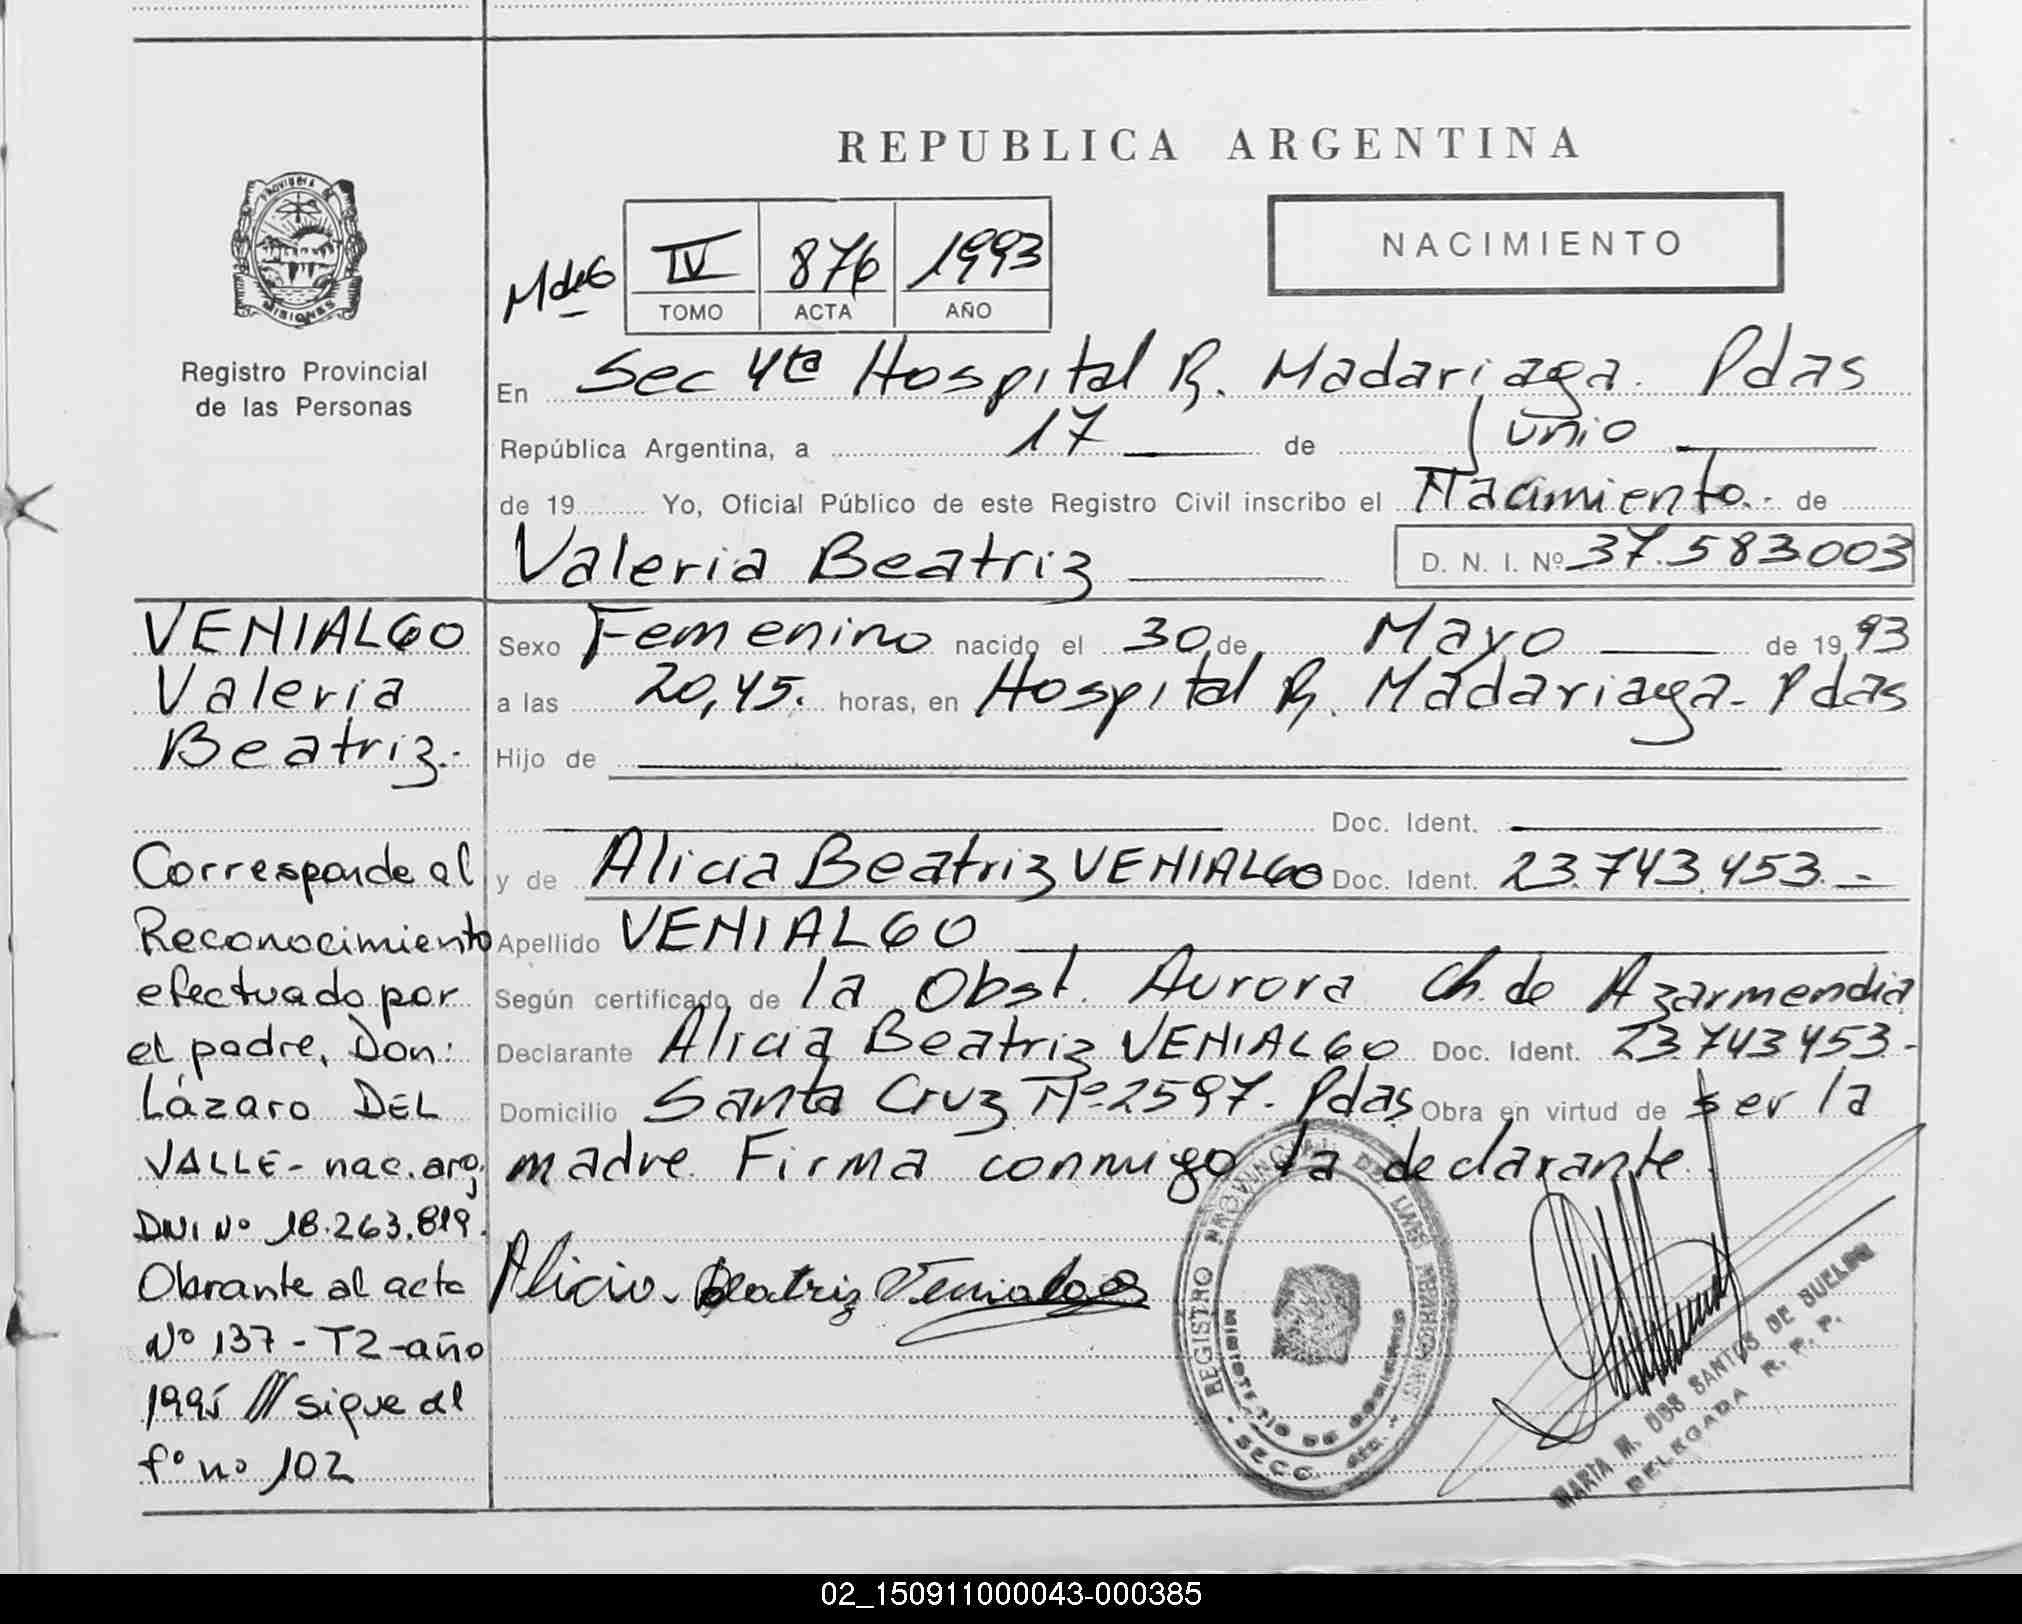 REPUBLICA ARGENTINA
NACIMIENTO
IV 876 1993
TOMO ACTA AÑO
PROVINCIA DE
MISIONES
Registro Provincial
de las Personas
En Sec 4ta Hospital R. Madariaga. Pdas
República Argentina, a 17 de Junio
de 19 Yo, Oficial Público de este Registro Civil inscribo el Nacimiento.- de
Valeria Beatriz D. N. I. Nº 37.583.003
VENIALGO
Valeria
Beatriz.-
Corresponde al
Reconocimiento
efectuado por
el padre, Don:
Lázaro DEL
VALLE- nac. arg,
DNI Nº 18.263.819.
Obrante al acta
Nº 137 - T2 - año
1995 /// sigue al
fº nº 102
Sexo Femenino nacido el 30 de Mayo de 19 93
a las 20,45. horas, en Hospital R. Madariaga- Pdas
Hijo de
Doc. Ident.
y de Alicia Beatriz VENIALGO Doc. Ident. 23.743.453.-
Apellido VENIALGO
Según certificado de la Obst. Aurora Ch. de Azarmendia
Declarante Alicia Beatriz VENIALGO Doc. Ident. 23.743.453.-
Domicilio Santa Cruz Nº 2597. Pdas Obra en virtud de ser la
madre. Firma conmigo la declarante.
Alicia Beatriz Venialgo
REGISTRO PROVINCIAL DE LAS PERSONAS
MINISTERIO DE GOBIERNO
SECC. 4ta.
MARIA M. DOS SANTOS DE BUELON
DELEGADA R. P. P.
02_150911000043-000385